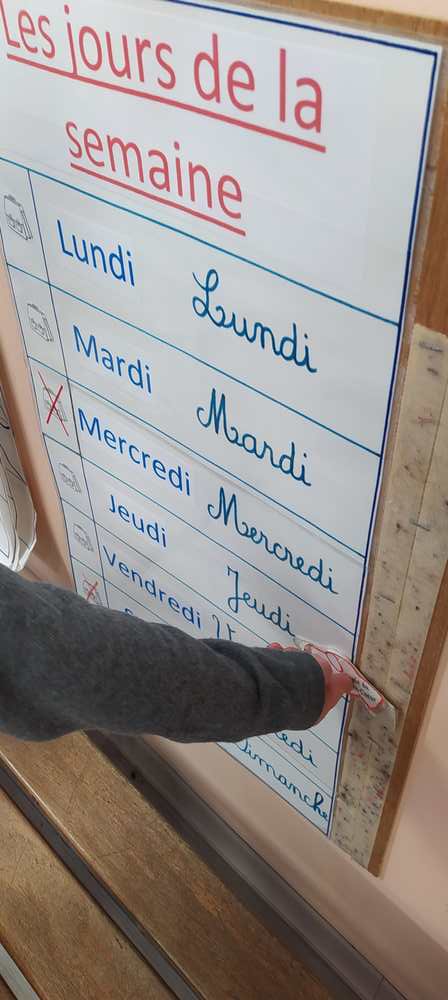 Les jours de la
semaine
Lundi Lundi
Mardi Mardi
Mercredi Mercredi
Jeudi Jeudi
Vendredi
Dimanche